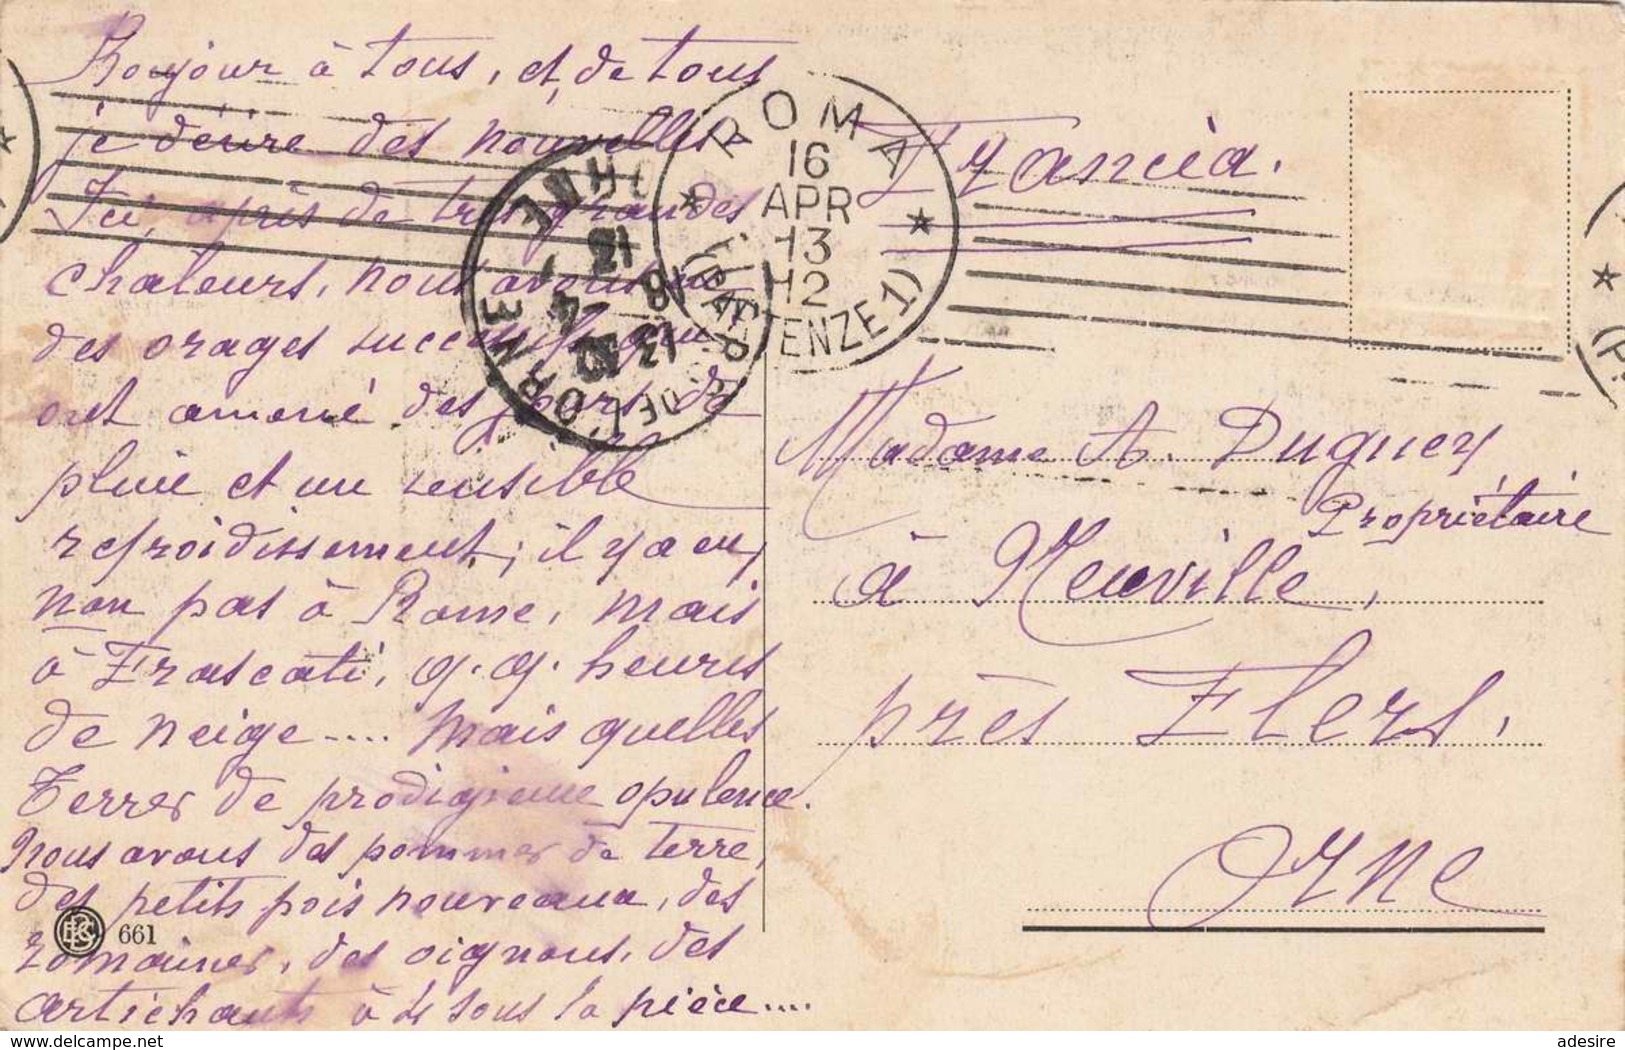 Bonjour à tous, et, de tous
je désire des nouvelles
Ici, après de très grandes
chaleurs, nous avons eu
des orages successifs qui
ont amené des jours de
pluie et un sensible
refroidissement; il y a eu,
non pas à Rome, mais
à Frascati, q.q. heures
de neige.... Mais quelles
Terres de prodigieuse opulence.
Nous avons des pommes de terre,
des petits pois nouveaux, des
romaines, des oignons, des
artichauts à 4 sous la pièce....
661
ROMA
16
APR
13
12
(PARTENZE 1)
ORNE
18
13
DE L'ORNE
Francia.
Madame A. Duguey
Propriétaire
à Neuville,
près Flers,
Orne
adesire